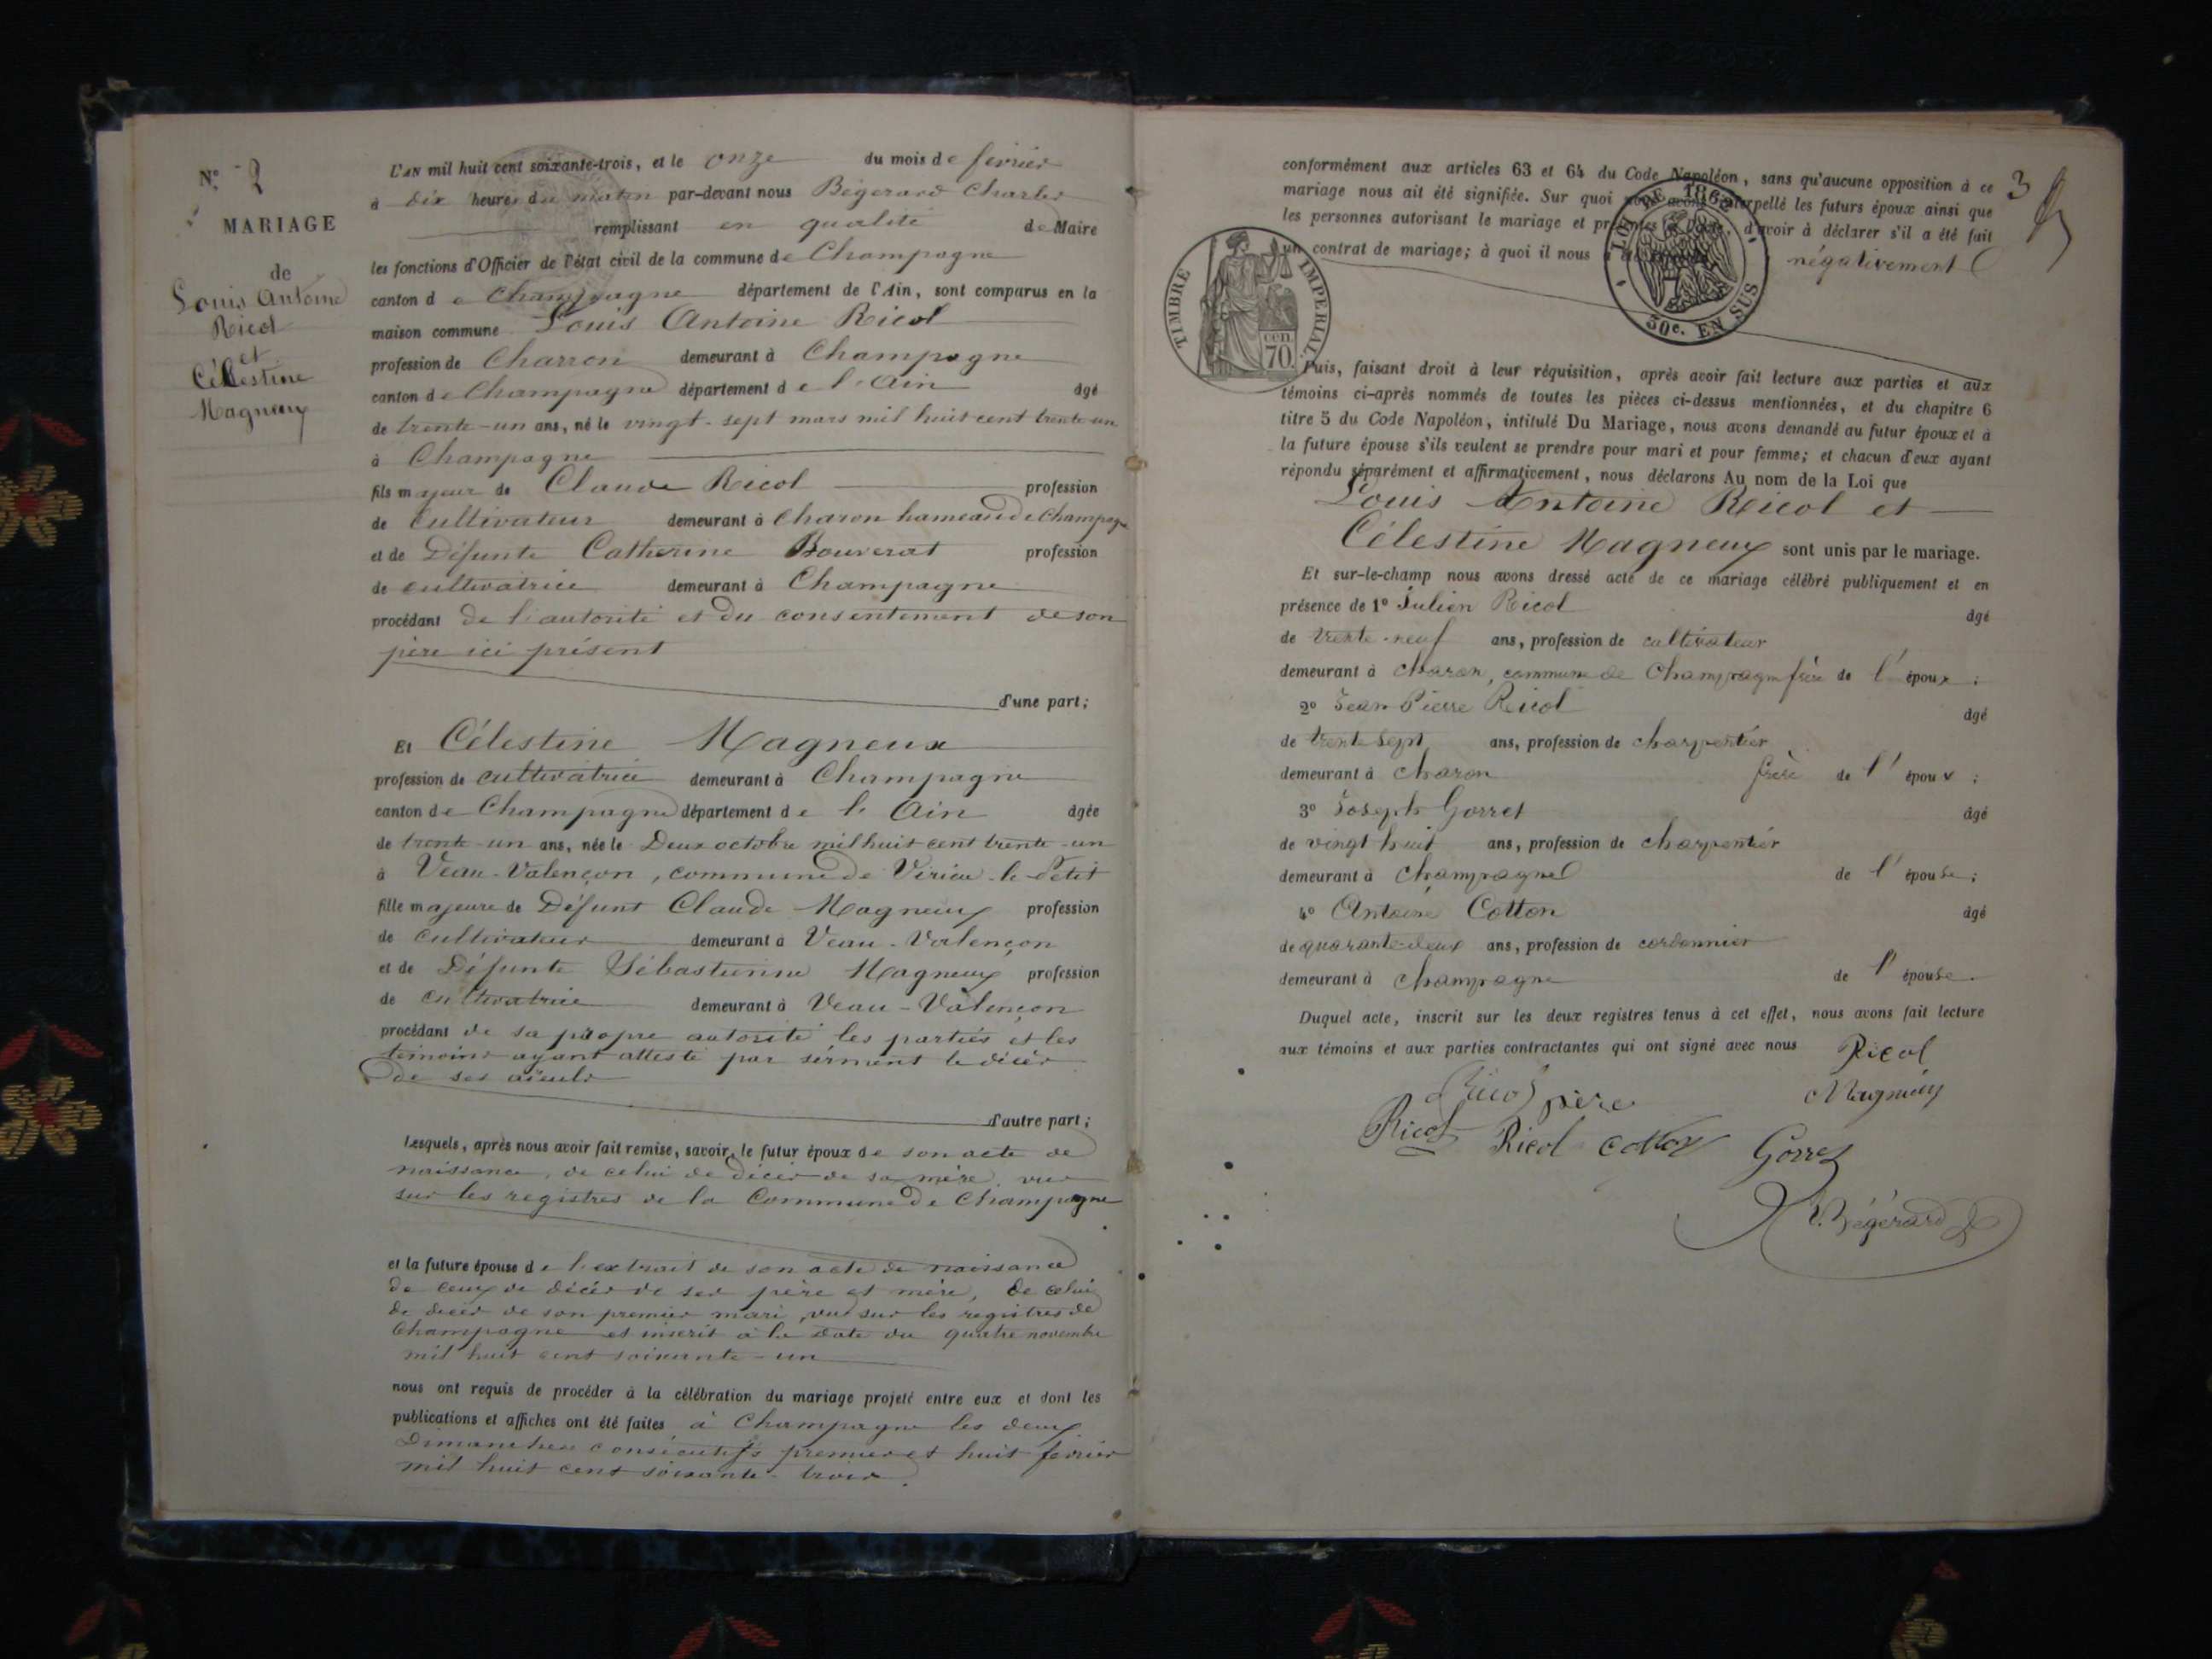 N.º 2
MARIAGE
de
Louis Antoine
Ricol
et
Célestine
Magneux
L'AN mil huit cent soixante-trois, et le onze du mois de février
à dix heures du matin par-devant nous Bégerard Charles
remplissant en qualité de Maire
les fonctions d'Officier de l'état civil de la commune de Champagne
canton de Champagne département de l'Ain, sont comparus en la
maison commune Louis Antoine Ricol
profession de Charron demeurant à Champagne
canton de Champagne département de l'Ain âgé
de trente-un ans, né le vingt-sept mars mil huit cent trente-un
à Champagne
fils majeur de Claude Ricol profession
de Cultivateur demeurant à Charon hameau de Champagne
et de Défunte Catherine Bouverat profession
de cultivatrice demeurant à Champagne
procédant de l'autorité et du consentement de son
père ici présent
d'une part;
Et Célestine Magneux
profession de cultivatrice demeurant à Champagne
canton de Champagne département de l'Ain âgée
de trente-un ans, née le Deux octobre mil huit cent trente-un
à Veau-Valençon, commune de Virieu-le-Petit
fille majeure de Défunt Claude Magneux profession
de Cultivateur demeurant à Veau-Valençon
et de Défunte Sébastienne Magneux profession
de cultivatrice demeurant à Veau-Valençon
procédant de sa propre autorité les parties et les
témoins ayant attesté par serment le décès
de ses aïeuls
d'autre part;
Lesquels, après nous avoir fait remise, savoir, le futur époux de son acte de
naissance, de celui de décès de sa mère, vus
sur les registres de la Commune de Champagne
et la future épouse de l'extrait de son acte de naissance
de ceux de décès de ses père et mère, de celui
de décès de son premier mari, vus sur les registres de
Champagne et inscrit à la date du quatre novembre
mil huit cent soixante-un
nous ont requis de procéder à la célébration du mariage projeté entre eux et dont les
publications et affiches ont été faites à Champagne les deux
Dimanches consécutifs premier et huit février
mil huit cent soixante-trois.
3
conformément aux articles 63 et 64 du Code Napoléon, sans qu'aucune opposition à ce
mariage nous ait été signifiée. Sur quoi nous avons interpellé les futurs époux ainsi que
les personnes autorisant le mariage et présentes à l'acte, d'avoir à déclarer s'il a été fait
un contrat de mariage; à quoi il nous a été négativement
LOI DE 1862
30c. EN SUS
TIMBRE IMPERIAL
cen.
70.
Puis, faisant droit à leur réquisition, après avoir fait lecture aux parties et aux
témoins ci-après nommés de toutes les pièces ci-dessus mentionnées, et du chapitre 6
titre 5 du Code Napoléon, intitulé Du Mariage, nous avons demandé au futur époux et à
la future épouse s'ils veulent se prendre pour mari et pour femme; et chacun d'eux ayant
répondu séparément et affirmativement, nous déclarons Au nom de la Loi que
Louis Antoine Ricol et
Célestine Magneux sont unis par le mariage.
Et sur-le-champ nous avons dressé acte de ce mariage célébré publiquement et en
présence de 1º Julien Ricol âgé
de trente-neuf ans, profession de cultivateur
demeurant à Charon, commune de Champagne frère de l'époux;
2º Jean-Pierre Ricol âgé
de trente sept ans, profession de charpentier
demeurant à Charon frère de l'époux;
3º Joseph Gorret âgé
de vingt huit ans, profession de charpentier
demeurant à Champagne de l'épouse;
4º Antoine Cotton âgé
de quarante-deux ans, profession de cordonnier
demeurant à Champagne de l'épouse.
Duquel acte, inscrit sur les deux registres tenus à cet effet, nous avons fait lecture
aux témoins et aux parties contractantes qui ont signé avec nous Ricol
Ricol père Magneux
Ricol Ricol Cotton Gorret
Bégerard